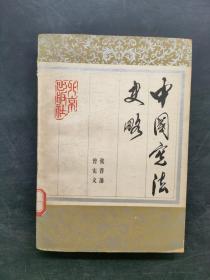 中国宪法
史略
张晋藩
曾宪义
北京
出版社